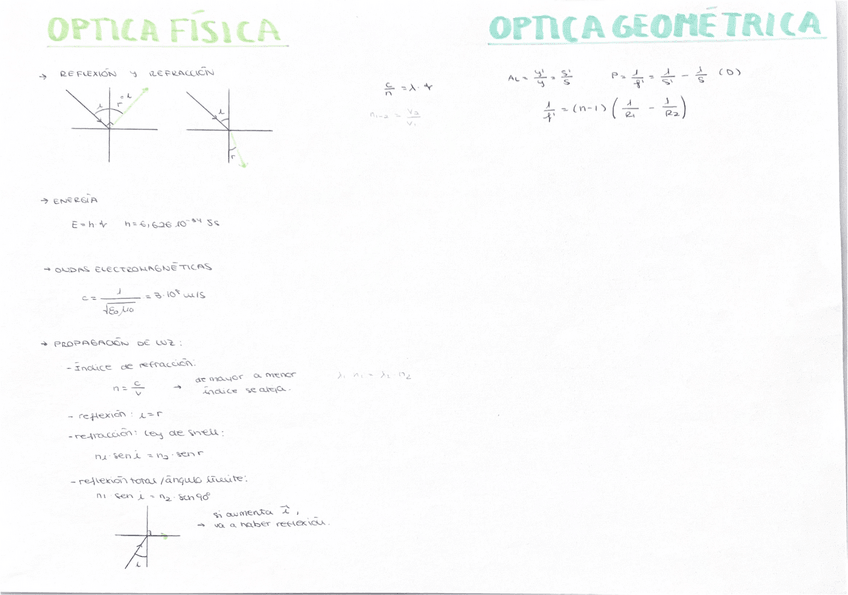 OPTICA FÍSICA
→ REFLEXIÓN Y REFRACCIÓN
i r = i
i r
c/n = λ · f
n₁₋₂ = v₂/v₁
→ ENERGÍA
E = h · f h = 6,626·10⁻³⁴ Js
→ ONDAS ELECTROMAGNÉTICAS
c = 1/√ε₀μ₀ = 3·10⁸ m/s
→ PROPAGACIÓN DE LUZ:
- Índice de refracción:
n = c/v → de mayor a menor
índice se aleja.
λ₁ n₁ = λ₂ · n₂
- reflexión: i = r
- refracción: Ley de snell:
n₁ · sen i = n₂ · sen r
- reflexión total/ángulo límite:
n₁ · sen i = n₂ · sen 90°
i
si aumenta i,
→ va a haber reflexión.
OPTICA GEOMÉTRICA
A_L = y'/y = s'/s P = 1/f' = 1/s' - 1/s (D)
1/f' = (n-1) (1/R₁ - 1/R₂)